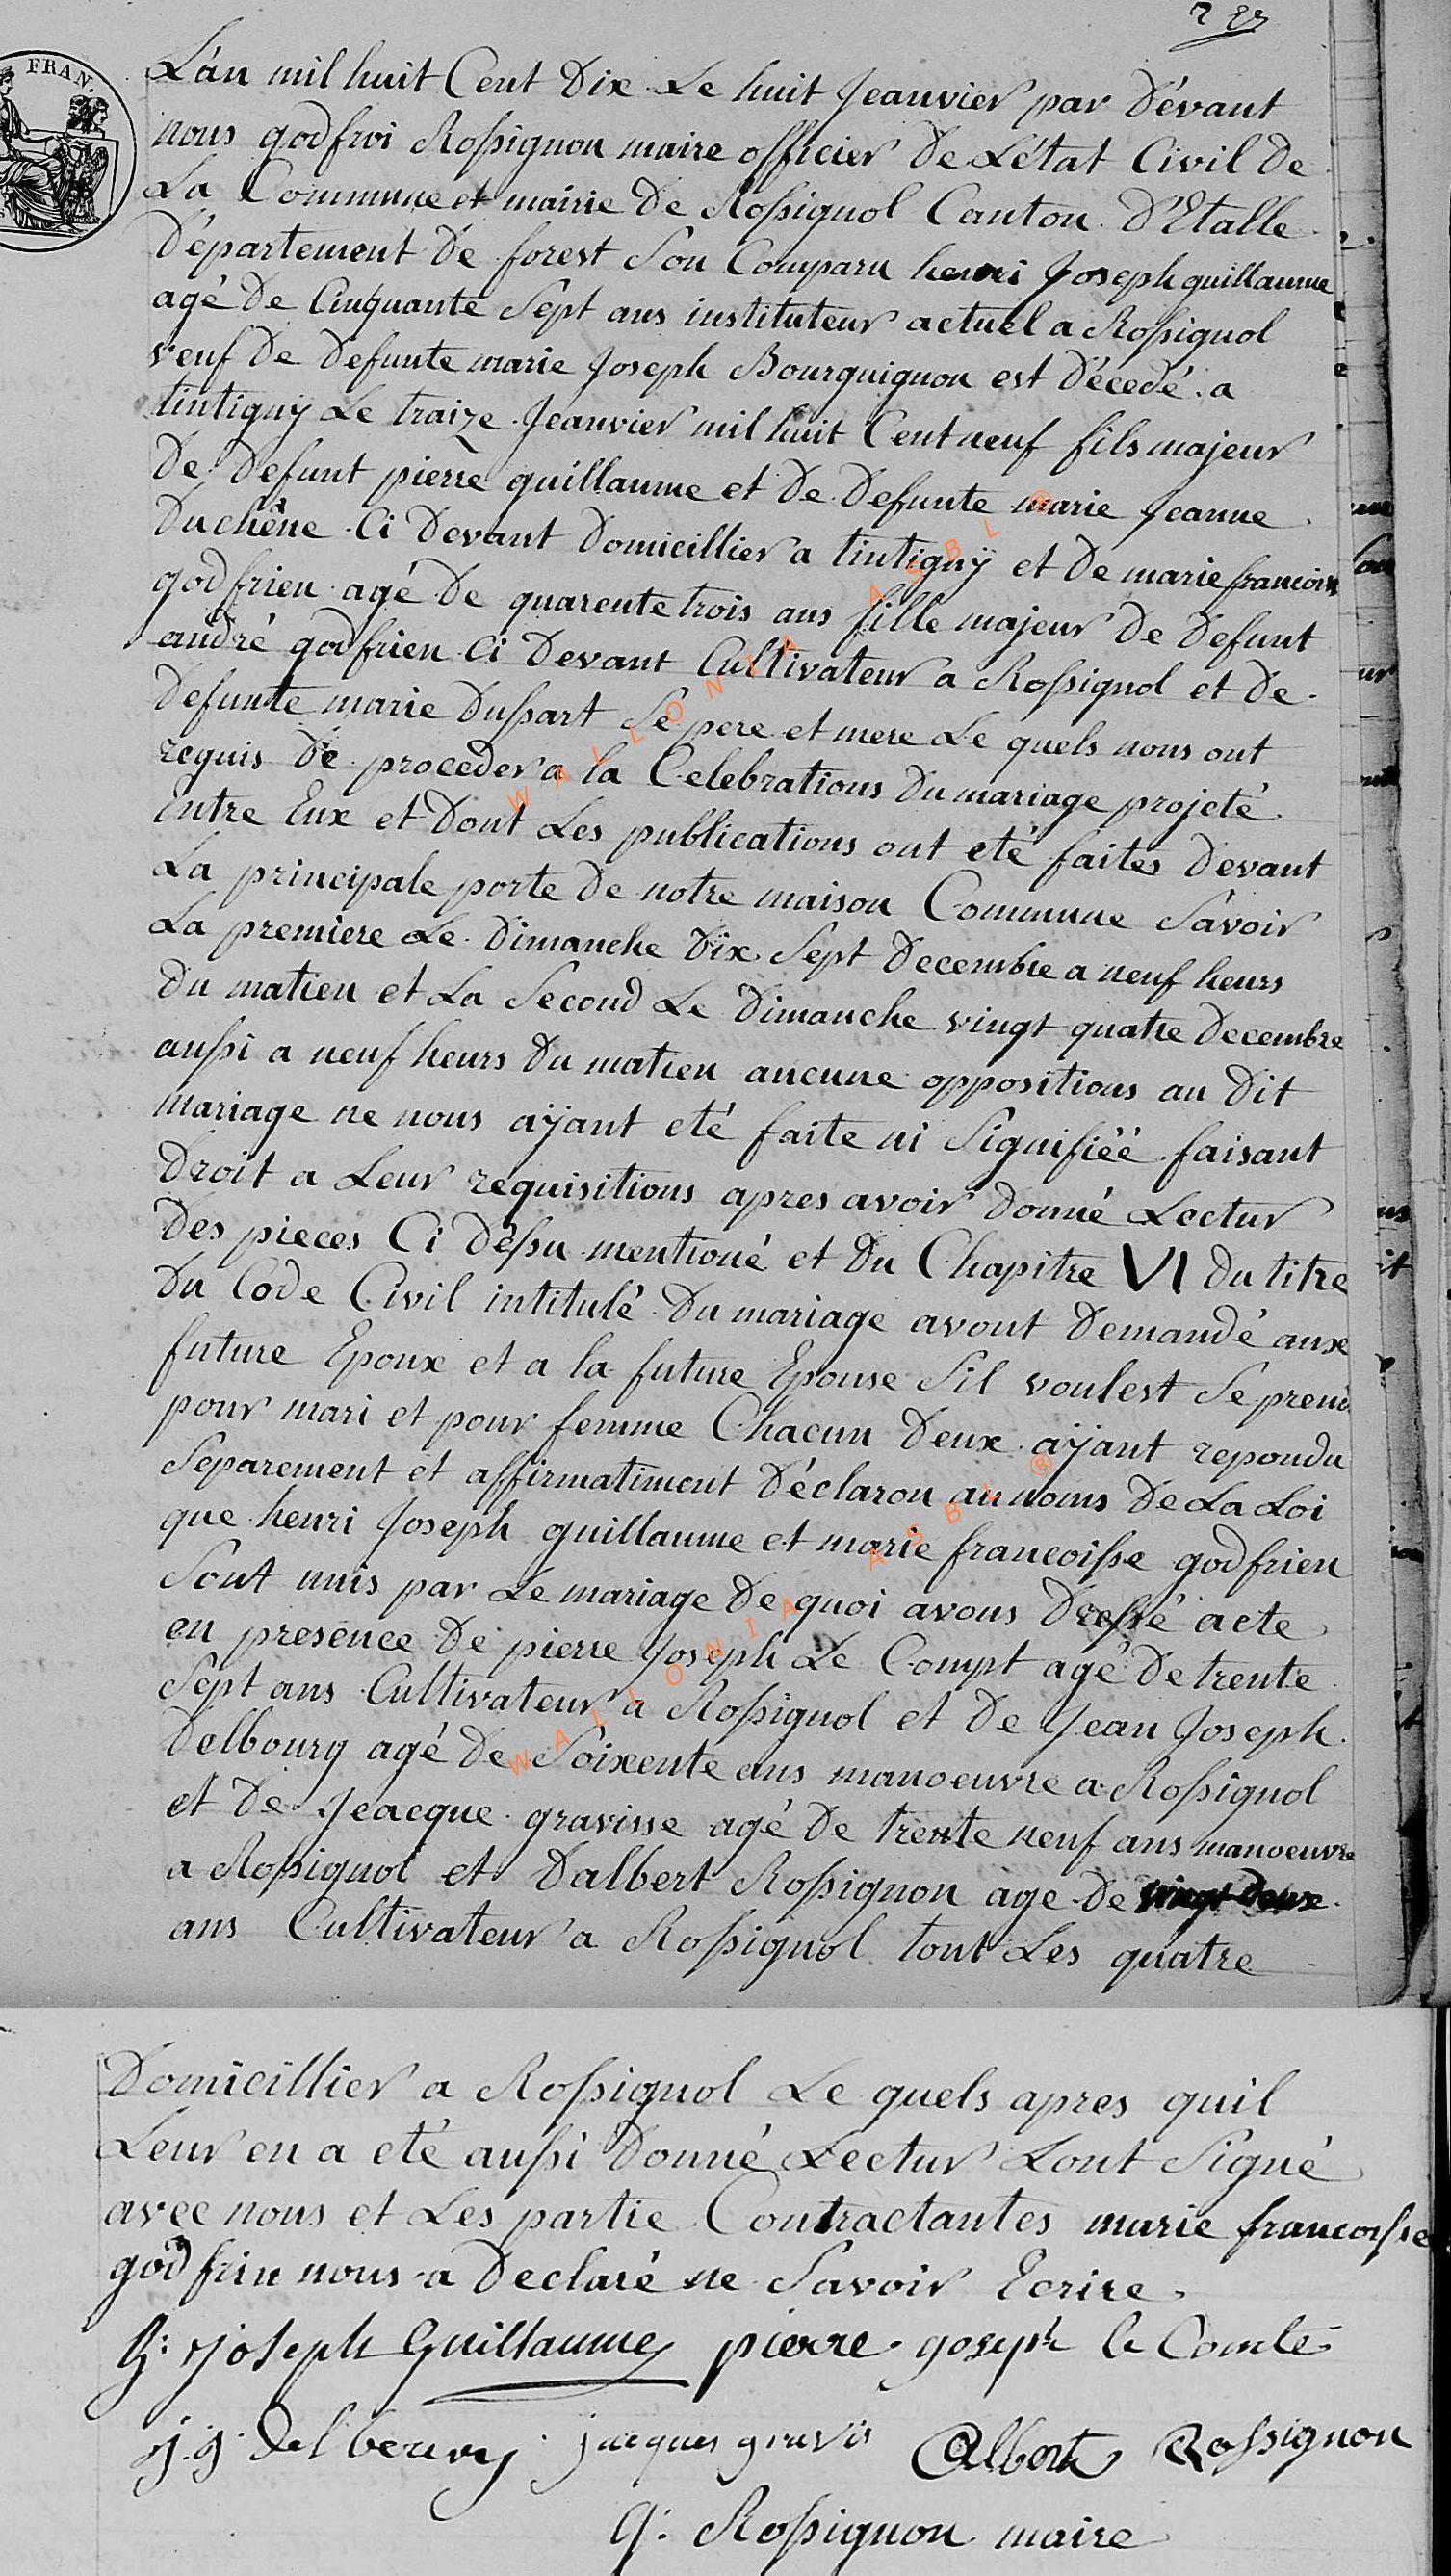 FRAN.
L'an mil huit Cent Dix Le huit Jeanvier par Dévant
nous godfroi Rossignon maire officier De L'état Civil De
La Commune et mairie De Rossignol Canton D'Etalle
Département De forest Son Comparu henri Joseph guillaume
agé De Cinquante Sept ans instituteur actuel a Rossignol
veuf De Defunte marie Joseph Bourguignon est Décedé a
tintigny Le traize Jeanvier mil huit Cent neuf fils majeur
De Defunt pierre guillaume et De Defunte marie Jeanne
Duchêne Ci Devant Domicillier a tintigny et De marie francoise
godfrien agé De quarente trois ans fille majeur De Defunt
andré godfrien Ci Devant Cultivateur a Rossignol et De
Defunte marie Dussart Sé pere et mere Le quels nous ont
requis De proceder a la Celebrations Du mariage projeté
Entre Eux et Dont Les publications ont eté faites Devant
La principale porte De notre maison Commune Savoir
La premiere Le Dimanche Dix Sept Decembre a neuf heurs
Du matien et La Second Le Dimanche vingt quatre Decembre
aussi a neuf heurs Du matien aucune oppositions au Dit
mariage ne nous aÿant eté faite ni Signifiéé faisant
Droit a Leur requisitions apres avoir Donné Lectur
Des pieces Ci Dessu mentioné et Du Chapitre VI Du titre
Du Code Civil intitulé Du mariage avont Demandé aux
future Epoux et a la future Epouse Sil voulest Se prend
pour mari et pour femme Chacun Deux aÿant repondu
Separement et affirmatiment Déclaron au noms De La Loi
que henri Joseph guillaume et marie francoisse godfrien
Sont unis par Le mariage De quoi avons Dressé acte
en presence De pierre Joseph Le Compt agé De trente
Sept ans Cultivateur a Rossignol et De Jean Joseph
Delbourg agé De Soixente ans manoeuvre a Rossignol
et De Jeacque gravisse agé De trente neuf ans manoeuvre
a Rossignol et Dalbert Rossignon age De vingt Deux
ans Cultivateur a Rossignol tout Les quatre
Domicillier a Rossignol Le quels apres quil
Leur en a eté aussi Donné Lectur Lont Signé
avec nous et Les partie Contractantes marie francoisse
godfrin nous a Declaré ne Savoir Ecrire
h: Joseph Guillaume pierre goseph le Comte
j. j. Delbourg jacques gravis Albert Rossignon
G: Rossignon maire
WALLONIA ASBL ®
WALLONIA ASBL ®